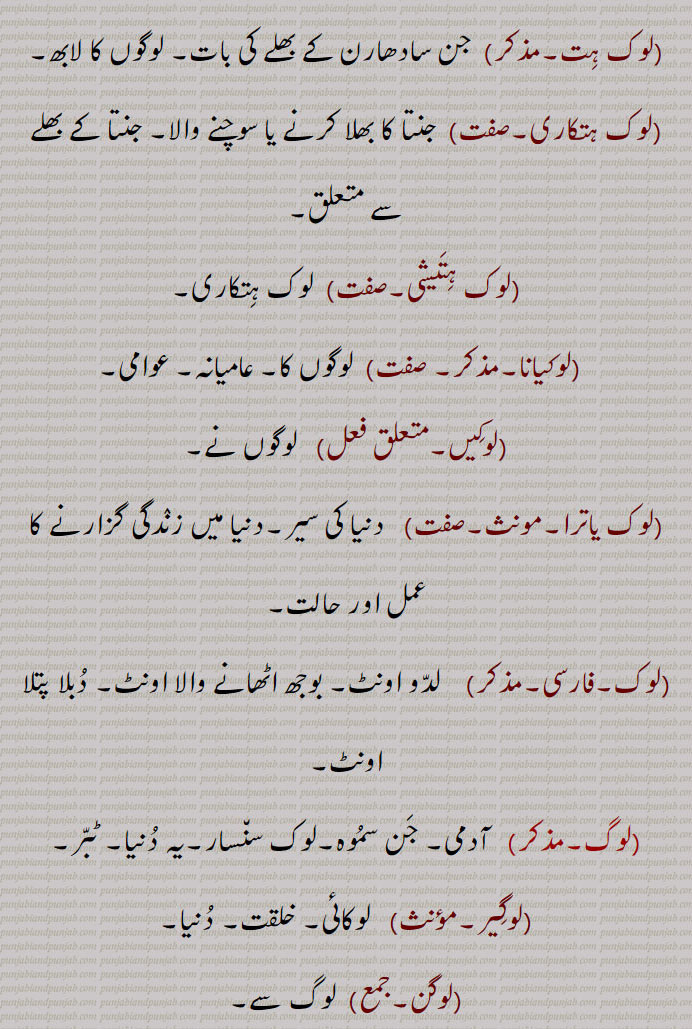 (لوک ہِت۔مذکر) جن سادھارن کے بھلے کی بات۔ لوگوں کا لابھ۔
(لوک ہتکاری۔صفت) جنتا کا بھلا کرنے یا سوچنے والا۔ جنتا کے بھلے
سے متعلق۔
(لوک ہِتَیشی۔صفت) لوک ہِتکاری۔
(لوکیانا۔مذکر۔ صفت) لوگوں کا۔ عامیانہ۔ عوامی۔
(لوکِیں۔متعلق فعل) لوگوں نے۔
(لوک یاترا۔مونث۔صفت) دنیا کی سیر۔دنیا میں زندگی گزارنے کا
عمل اور حالت۔
(لوک۔فارسی۔مذکر) لدّو اونٹ۔ بوجھ اٹھانے والا اونٹ۔ دُبلا پتلا
اونٹ۔
(لوگ۔مذکر) آدمی۔ جَن سمُوہ۔لوک سنّسار۔یہ دُنیا۔ ٹبّر۔
(لوگِیر۔مؤنث) لوکائی۔ خلقت۔ دُنیا۔
(لوگن۔جمع) لوگ سے۔